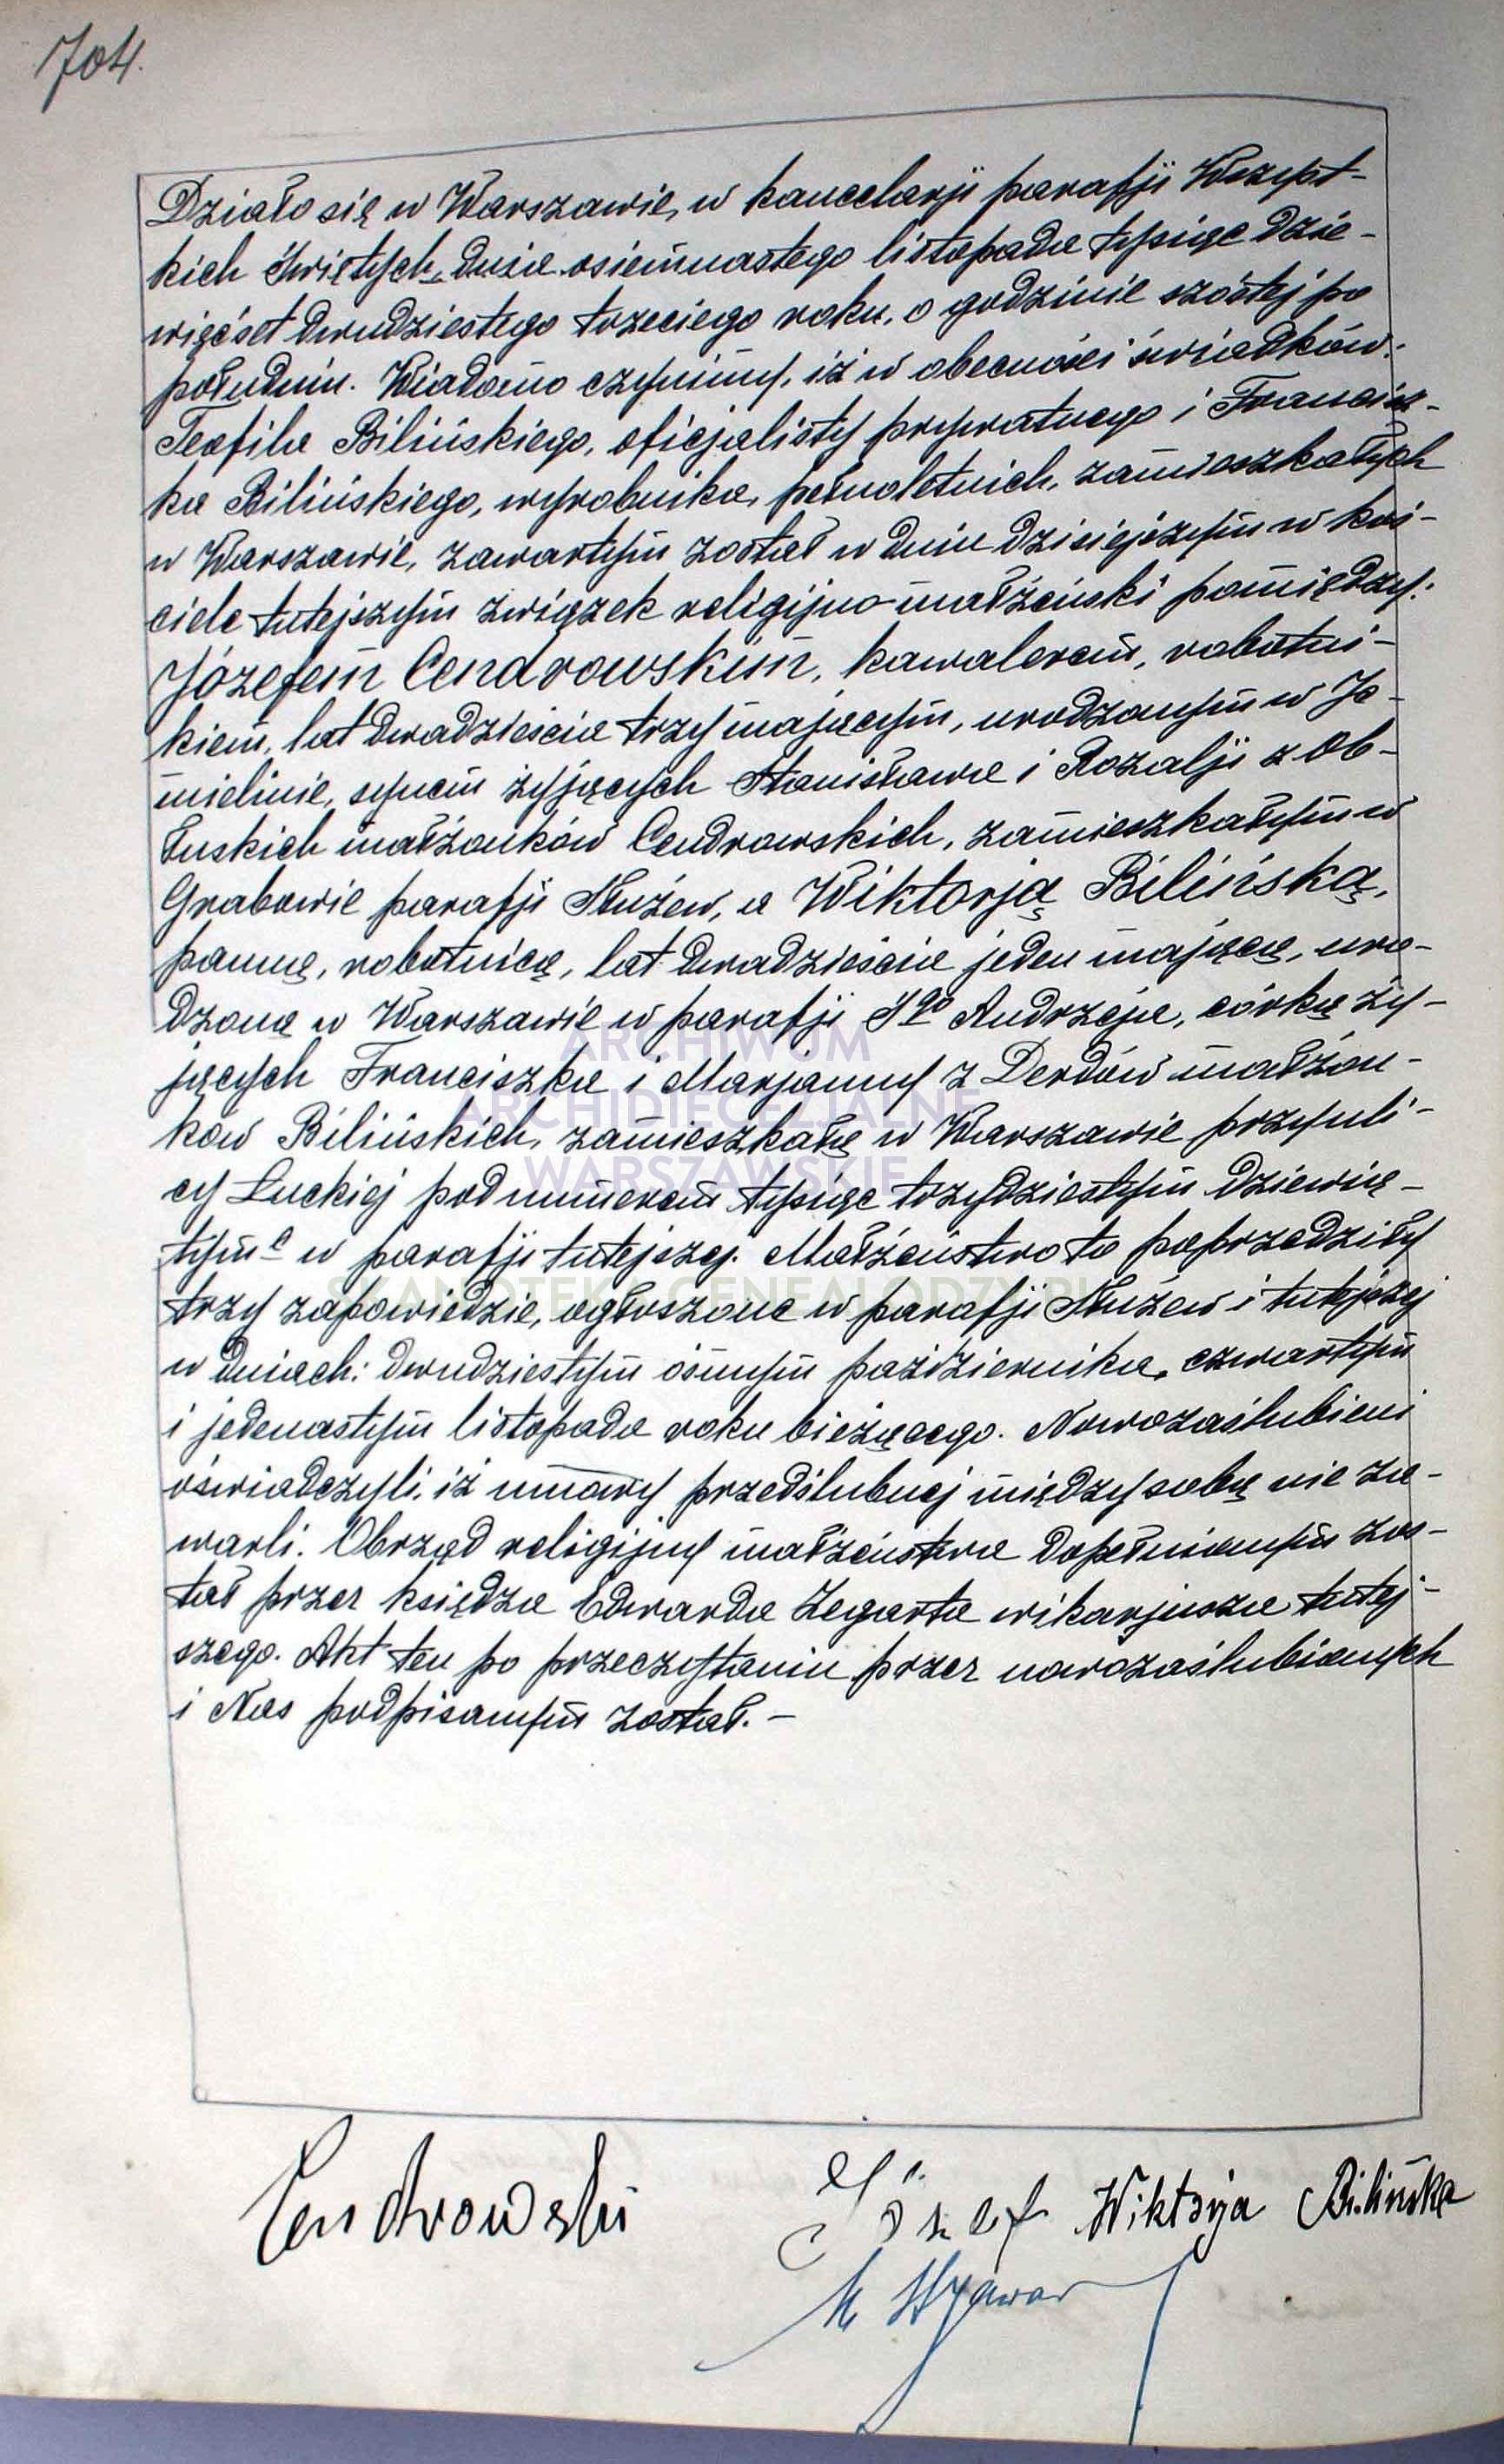 704.
Działo się w Warszawie, w kancelarji parafji Wszyst-
kich Świętych, dnia osiemnastego listopada tysiąc dzie-
więćset dwudziestego trzeciego roku, o godzinie szóstej po
południu. Wiadomo czynimy, iż w obecności świadków:
Teofila Bilińskiego, oficjalisty prywatnego i Francisz-
ka Bilińskiego, wyrobnika, pełnoletnich, zamieszkałych
w Warszawie, zawartym został w dniu dzisiejszym w koś-
ciele tutejszym związek religijno-małżeński pomiędzy:
Józefem Cendrowskim, kawalerem, robotni-
kiem, lat dwadzieścia trzy mającym, urodzonym w Je-
mielinie, synem żyjących Stanisława i Rozalji z Ob-
łuskich małżonków Cendrowskich, zamieszkałym w
Grabowie parafji Służew, a Wiktorją Bilińską,
panną, robotnicą, lat dwadzieścia jeden mającą, uro-
dzoną w Warszawie w parafji Sgo Andrzeja, córką ży-
jących Franciszka i Marjanny z Derdów małżon-
ków Bilińskich, zamieszkałą w Warszawie przy uli-
cy Łuckiej pod numerem tysiąc trzydziestym dziewią-
tym c w parafji tutejszej. Małżeństwo to poprzedziły
trzy zapowiedzie, ogłoszone w parafji Służew i tutejszej
w dniach: dwudziestym ósmym października, czwartym
i jedenastym listopada roku bieżącego. Nowozaślubieni
oświadczyli, iż umowy przedślubnej między sobą nie za-
warli. Obrząd religijny małżeństwa dopełnionym zos-
tał przez księdza Edwarda Żegarta wikarjusza tutej-
szego. Akt ten po przeczytaniu przez nowozaślubionych
i Nas podpisanym został. –
Cendrowski Józef Wiktorja Bilińska
ARCHIWUM
ARCHIDIECEZJALNE
WARSZAWSKIE
SKANOTEKA.GENEALODZY.PL